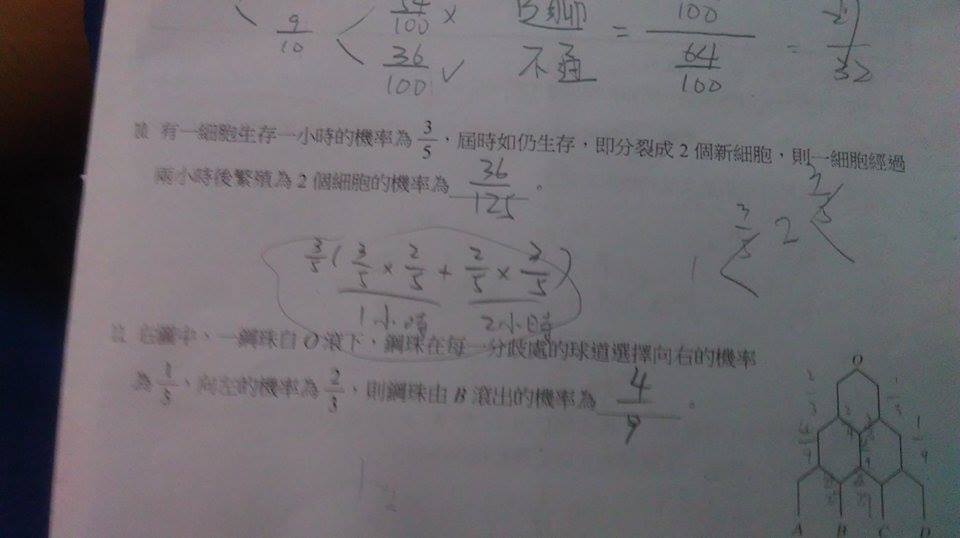 9/10 < 54/100 × 36/100 ✓ 不通 = 100 / 64/100 = 32
有一細胞生存一小時的機率為 3/5,屆時如仍生存,即分裂成 2 個新細胞,則一細胞經過
兩小時後繁殖為 2 個細胞的機率為 36/125 。
3/5 1 2 3/5
3/5 ( 3/5 × 2/5 + 2/5 × 3/5 )
1小時 2小時
右圖中、一鋼珠自 O 滾下,鋼珠在每一分歧處的球道選擇向右的機率
為 1/3、向左的機率為 2/3,則鋼珠由 B 滾出的機率為 4/9 。
O
2/3 1/3
4/9 1/9
A B C D